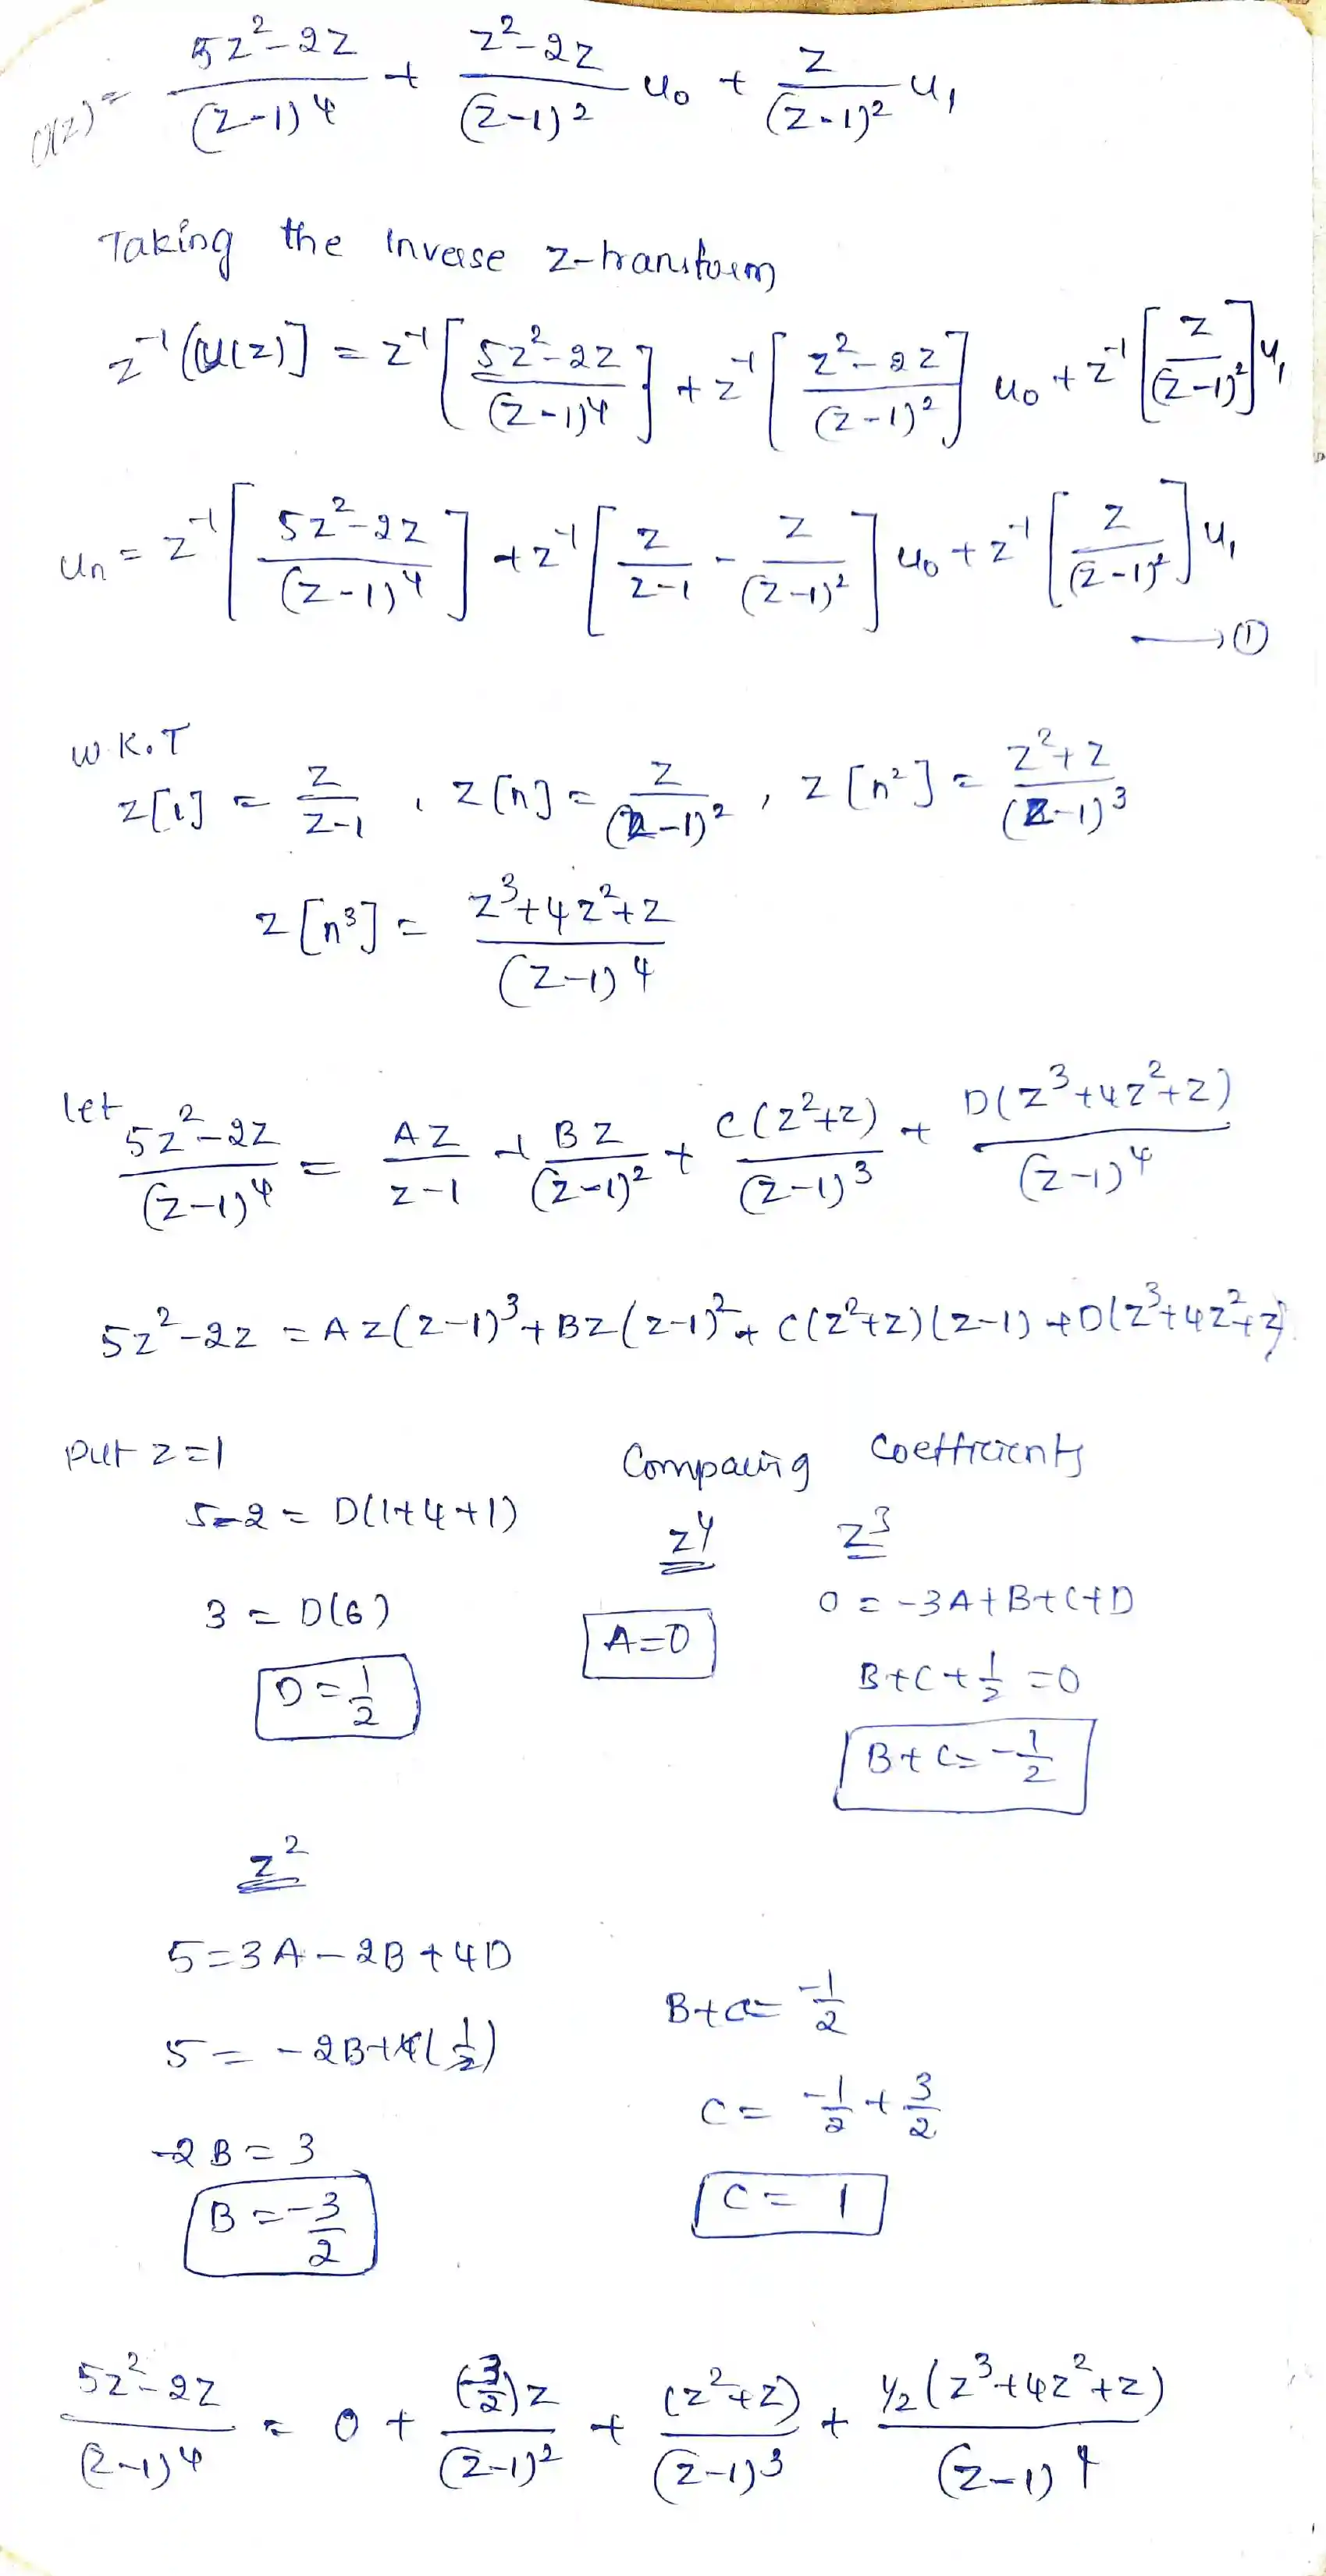 U(z) = (5z²-2z)/(z-1)⁴ + (z²-2z)/(z-1)² u₀ + z/(z-1)² u₁
Taking the Inverse z-transform
z⁻¹[U(z)] = z⁻¹[(5z²-2z)/(z-1)⁴] + z⁻¹[(z²-2z)/(z-1)²] u₀ + z⁻¹[z/(z-1)²] u₁
uₙ = z⁻¹[(5z²-2z)/(z-1)⁴] + z⁻¹[z/(z-1) - z/(z-1)²] u₀ + z⁻¹[z/(z-1)²] u₁
→ ①
W.K.T
z[1] = z/(z-1) , z[n] = z/(z-1)² , z[n²] = (z²+z)/(z-1)³
z[n³] = (z³+4z²+z)/(z-1)⁴
let (5z²-2z)/(z-1)⁴ = Az/(z-1) + Bz/(z-1)² + C(z²+z)/(z-1)³ + D(z³+4z²+z)/(z-1)⁴
5z²-2z = Az(z-1)³ + Bz(z-1)² + C(z²+z)(z-1) + D(z³+4z²+z)
put z=1
5-2 = D(1+4+1)
3 = D(6)
D = 1/2
Comparing Coefficients
z⁴
A=0
z³
0 = -3A+B+C+D
B+C+1/2 = 0
B+C = -1/2
z²
5=3A-2B+4D
5 = -2B+4(1/2)
-2B = 3
B = -3/2
B+C = -1/2
C = -1/2 + 3/2
C = 1
(5z²-2z)/(z-1)⁴ = 0 + (-3/2)z/(z-1)² + (z²+z)/(z-1)³ + 1/2(z³+4z²+z)/(z-1)⁴